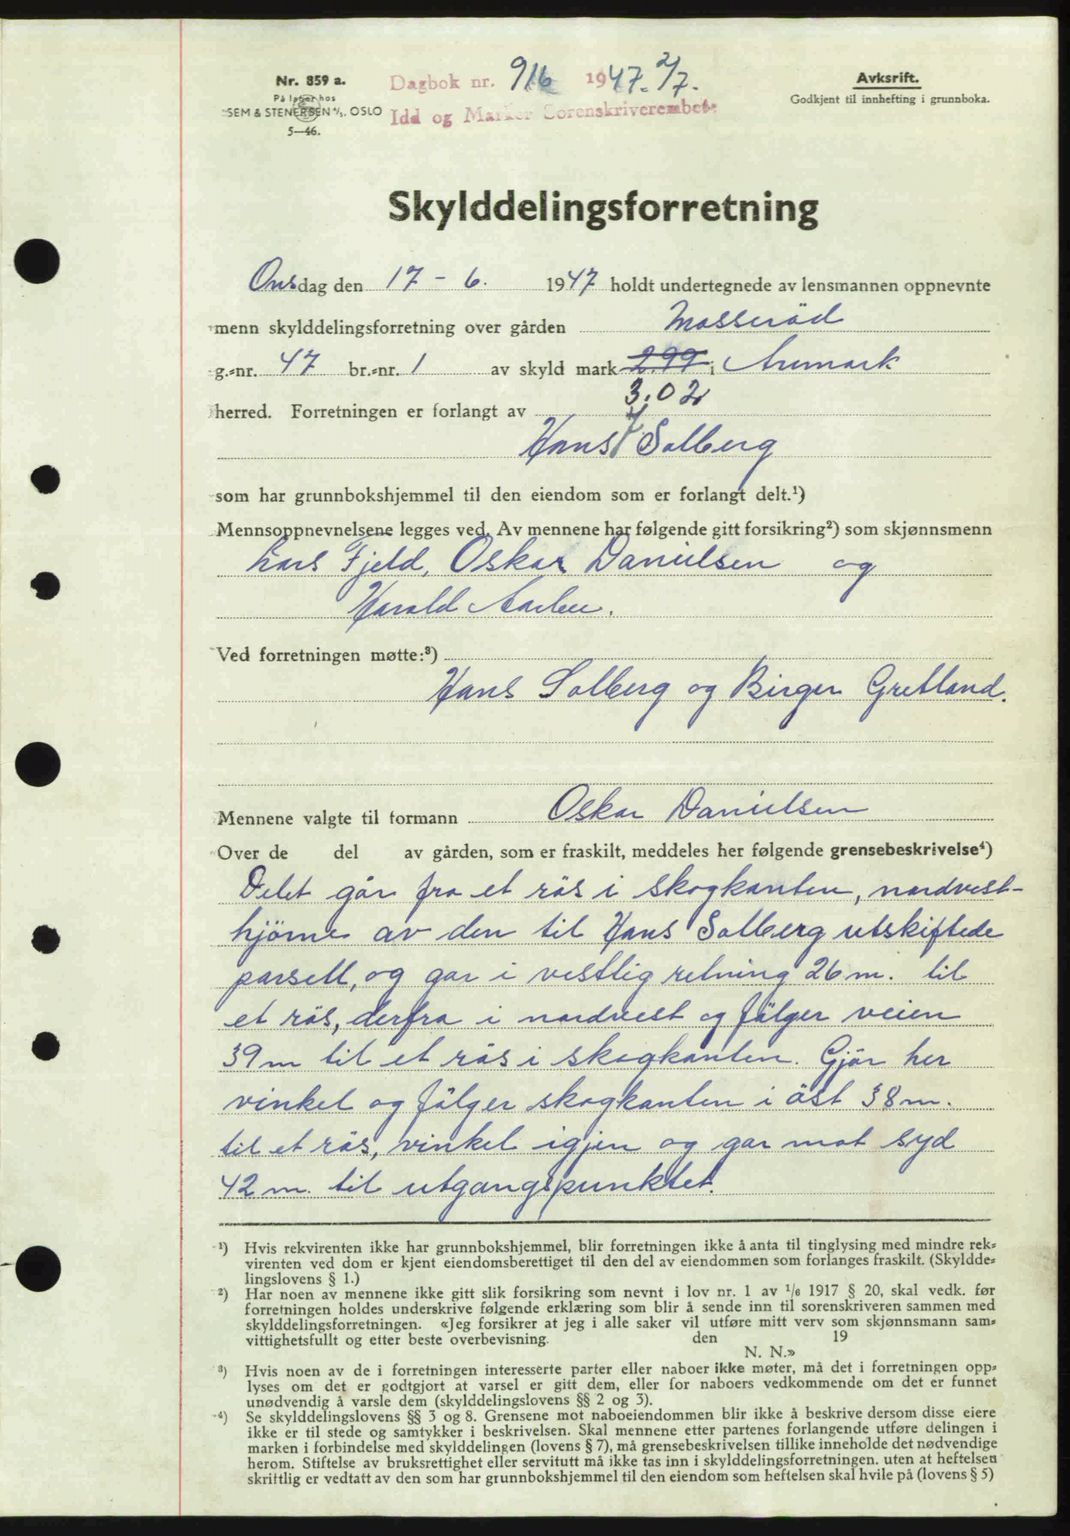 Nr. 859 a.
På lager hos
SEM & STENERSEN A/S. OSLO
5—46.
Dagbok nr. 916 1947. 2/7.
Idd og Marker Sorenskriverembete
Avskrift.
Godkjent til innhefting i grunnboka.
Skylddelingsforretning
Onsdag den 17 - 6. 1947 holdt undertegnede av lensmannen oppnevnte
menn skylddelingsforretning over gården Mosserød
g.-nr. 47 br.-nr. 1 av skyld mark 2.99 i Aremark
3.02
herred. Forretningen er forlangt av
Hans Solberg
som har grunnbokshjemmel til den eiendom som er forlangt delt.¹)
Mennsoppnevnelsene legges ved. Av mennene har følgende gitt forsikring²) som skjønnsmenn
Lars Fjeld, Oskar Danielsen og
Harald Aarbu.
Ved forretningen møtte:³)
Hans Solberg og Birger Gretland.
Mennene valgte til formann Oskar Danielsen
Over de del av gården, som er fraskilt, meddeles her følgende grensebeskrivelse⁴)
Delet går fra et rös i skogkanten, nordvest-
hjörne av den til Hans Solberg utskiftede
parsell, og gar i vestlig retning 26 m. til
et rös, derfra i nordvest og fölger veien
39 m til et rös i skogkanten. Gjör her
vinkel og fölger skogkanten i öst 38 m.
til et rös, vinkel igjen og gar mot syd
42 m. til utgangspunktet.
¹) Hvis rekvirenten ikke har grunnbokshjemmel, blir forretningen ikke å anta til tinglysing med mindre rek-
virenten ved dom er kjent eiendomsberettiget til den del av eiendommen som forlanges fraskilt. (Skyldde-
lingslovens § 1.)
²) Har noen av mennene ikke gitt slik forsikring som nevnt i lov nr. 1 av 1/6 1917 § 20, skal vedk. før
forretningen holdes underskrive følgende erklæring som blir å sende inn til sorenskriveren sammen med
skylddelingsforretningen. «Jeg forsikrer at jeg i alle saker vil utføre mitt verv som skjønnsmann sam-
vittighetsfullt og etter beste overbevisning. den 19
N. N.»
³) Hvis noen av de i forretningen interesserte parter eller naboer ikke møter, må det i forretningen opp-
lyses om det er godtgjort at varsel er gitt dem, eller for naboers vedkommende om det er funnet
unødvendig å varsle dem (skylddelingslovens §§ 2 og 3).
⁴) Se skylddelingslovens §§ 3 og 8. Grensene mot naboeiendommen blir ikke å beskrive dersom disse eiere
ikke er til stede og samtykker i beskrivelsen. Skal mennene etter partenes forlangende utføre delingen i
marken i forbindelse med skylddelingen (lovens § 7), må grensebeskrivelsen tillike inneholde det nødvendige
herom. Stiftelse av bruksrettighet eller servitutt må ikke tas inn i skylddelingsforretningen. uten at heftelsen
skriftlig er vedtatt av den som har grunnbokshjemmel til den eiendom som heftelsen skal hvile på (lovens § 5)